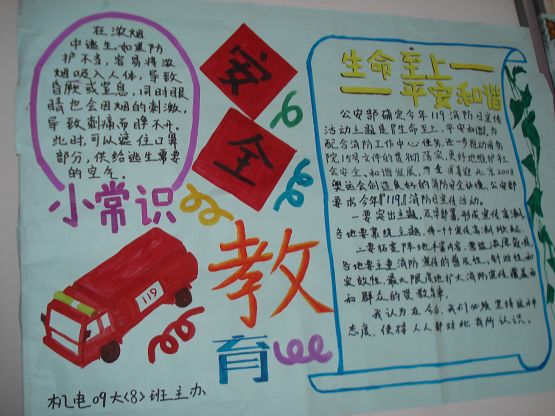 在浓烟
中逃生如果防
护不当,容易将浓
烟吸入人体,导致
昏厥或窒息,同时眼
睛也会因烟的刺激,
导致刺痛而睁不开。
此时,可以遮住口鼻
部分,供给逃生需要
的空气。
小常识
安
全
教
育
119
机电09大<8>班主办
生命至上——
——平安和谐
公安部确定今年119消防日宣传
活动主题是"生命至上,平安和谐,为
配合消防工作中心任务,进一步推动国务
院15号文件的贯彻落实,更好地维护社
会安全、和谐发展,为全 迎北京2008
奥运会创造良好的消防安全环境,公安部
要求今年"119"消防日宣传活动。
一要突出主题,及早部署,
各地要紧扣主题,
二要拓宽阵地丰富内容,
各地要注重消防宣传的普及性、针对性和
实效性,最大限度地扩大消防宣传覆盖面
和群众的受教育率。
我认为在今后,我们必须坚持这种
态度,使得人人都对此有所认识。